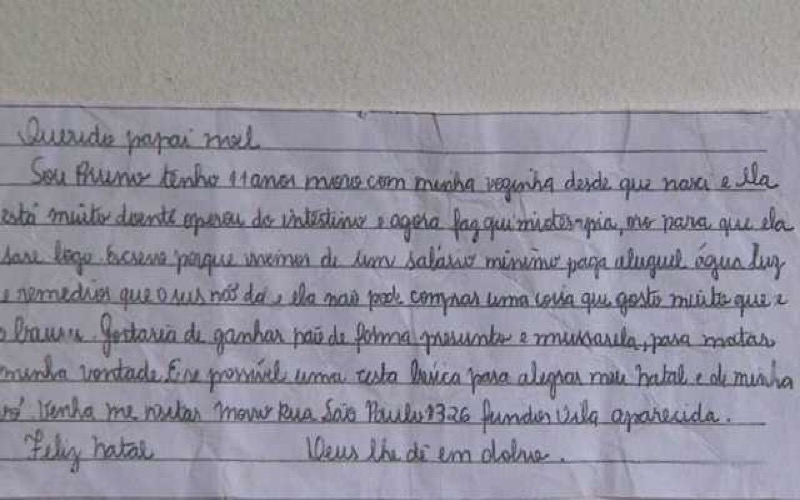 Querido papai noel
Sou Bruno tenho 11 anos moro com minha voginha desde que nasci e ela
está muito doente operou do intestino e agora faz quimioterapia, oro para que ela
sare logo. Escrevo porque vivemos de um salário mínimo paga aluguel água luz
e remedios que o sus nós dá e ela não pode comprar uma coisa que gosto muito que e
o bauru. Gostaria de ganhar paõ de forma presunto e mussarela, para matar
minha vontade. E se possível uma cesta básica para alegrar meu natal e de minha
vó. Venha me visitar Moro Rua São Paulo 1326 fundos Vila aparecida.
Feliz natal Deus lhe dê em dobro.